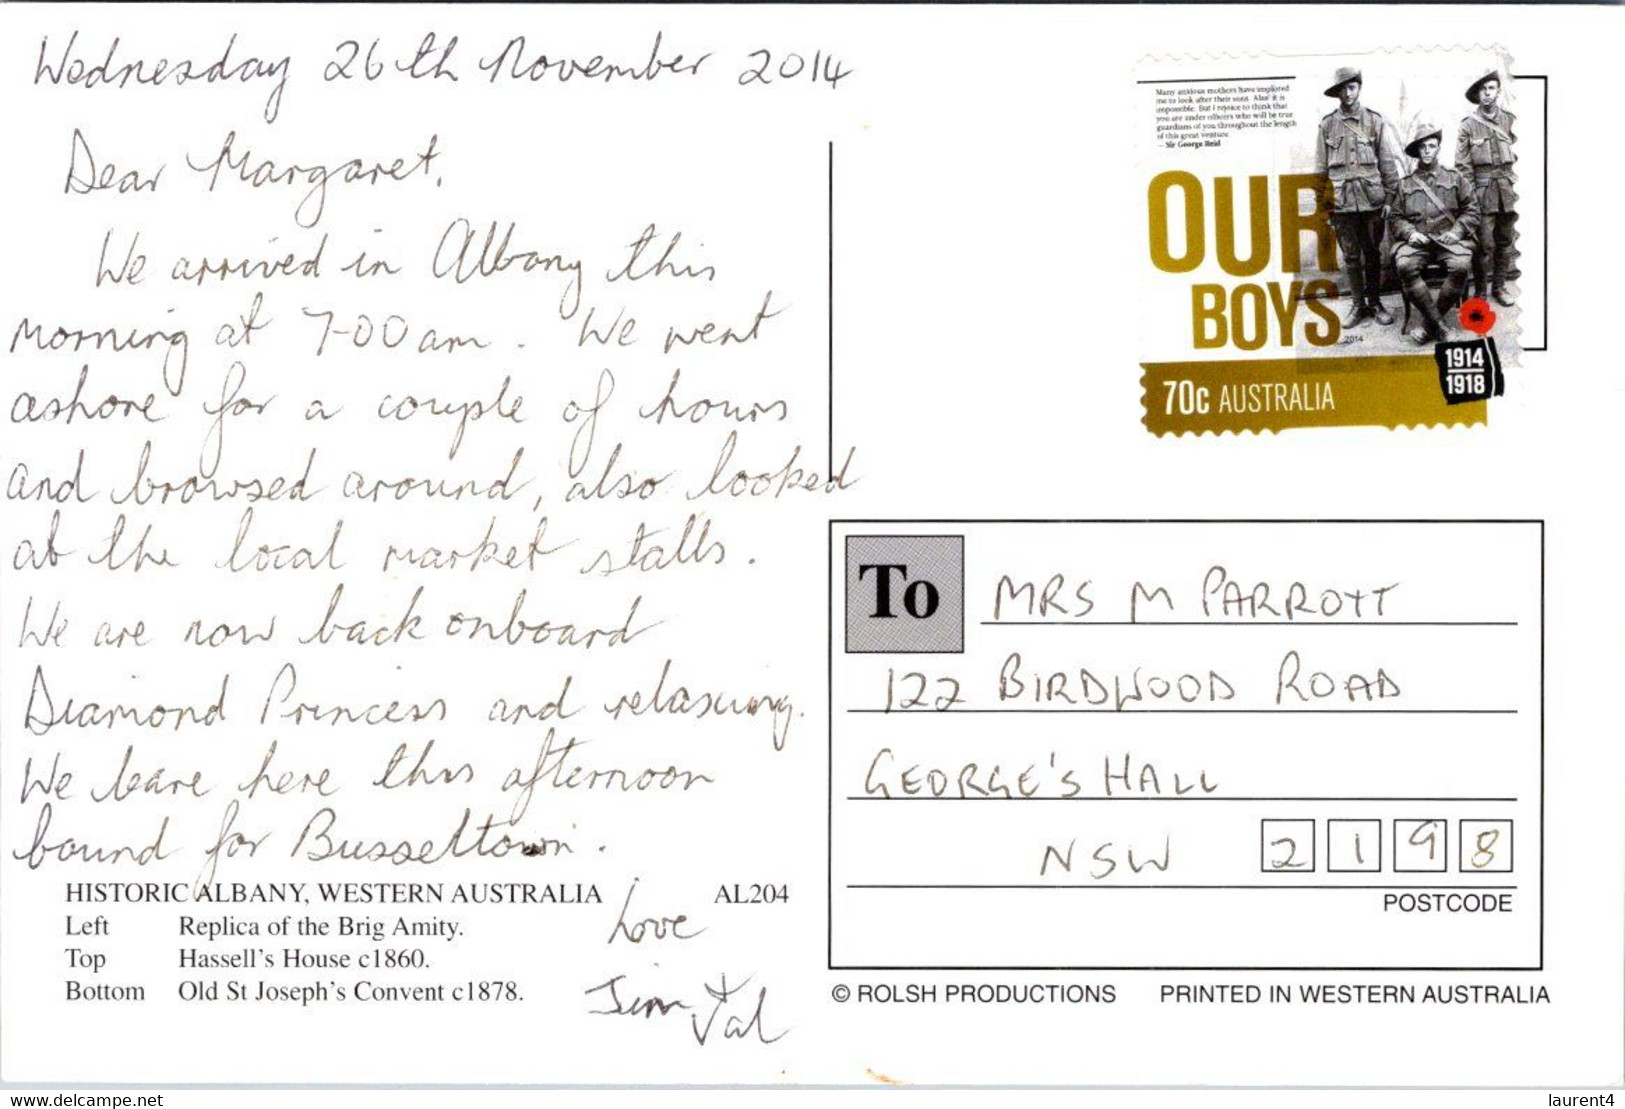 Wednesday 26th November 2014
Dear Margaret,
We arrived in Albany this
morning at 7-00am. We went
ashore for a couple of hours
and browsed around, also looked
at the local market stalls.
We are now back onboard
Diamond Princess and relaxing.
We leave here this afternoon
bound for Busseltown.
Love
Jim + Val
HISTORIC ALBANY, WESTERN AUSTRALIA AL204
Left Replica of the Brig Amity.
Top Hassell's House c1860.
Bottom Old St Joseph's Convent c1878.
Many anxious mothers have implored
me to look after their sons. Alas! it is
impossible. But I rejoice to think that
you are under officers who will be true
guardians of you throughout the length
of this great venture
– Sir George Reid
OUR
BOYS
2014
1914
1918
70c AUSTRALIA
To
MRS M PARROTT
122 BIRDWOOD ROAD
GEORGE'S HALL
NSW 2198
POSTCODE
© ROLSH PRODUCTIONS PRINTED IN WESTERN AUSTRALIA
www.delcampe.net
laurent4